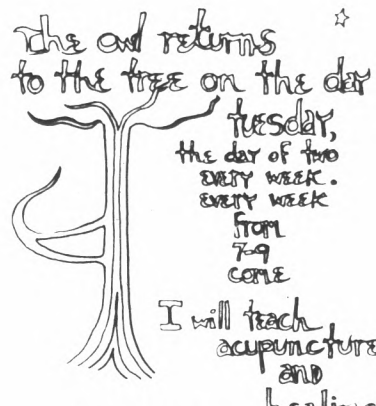 The owl returns
to the tree on the day
tuesday,
the day of two
every week.
every week
from
7-9
come
I will teach
acupuncture
and